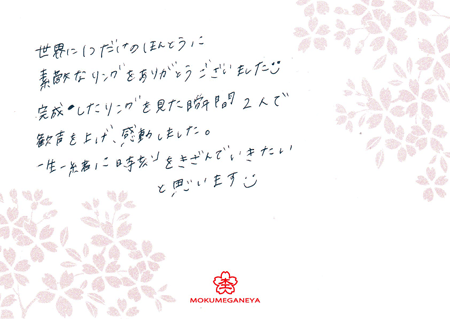 世界に1つだけのほんとうに
素敵なリングをありがとうございました
完成したリングを見た瞬間2人で
歓声を上げ、感動しました。
一生一緒に時刻をきざんでいきたい
と思います
MOKUMEGANEYA